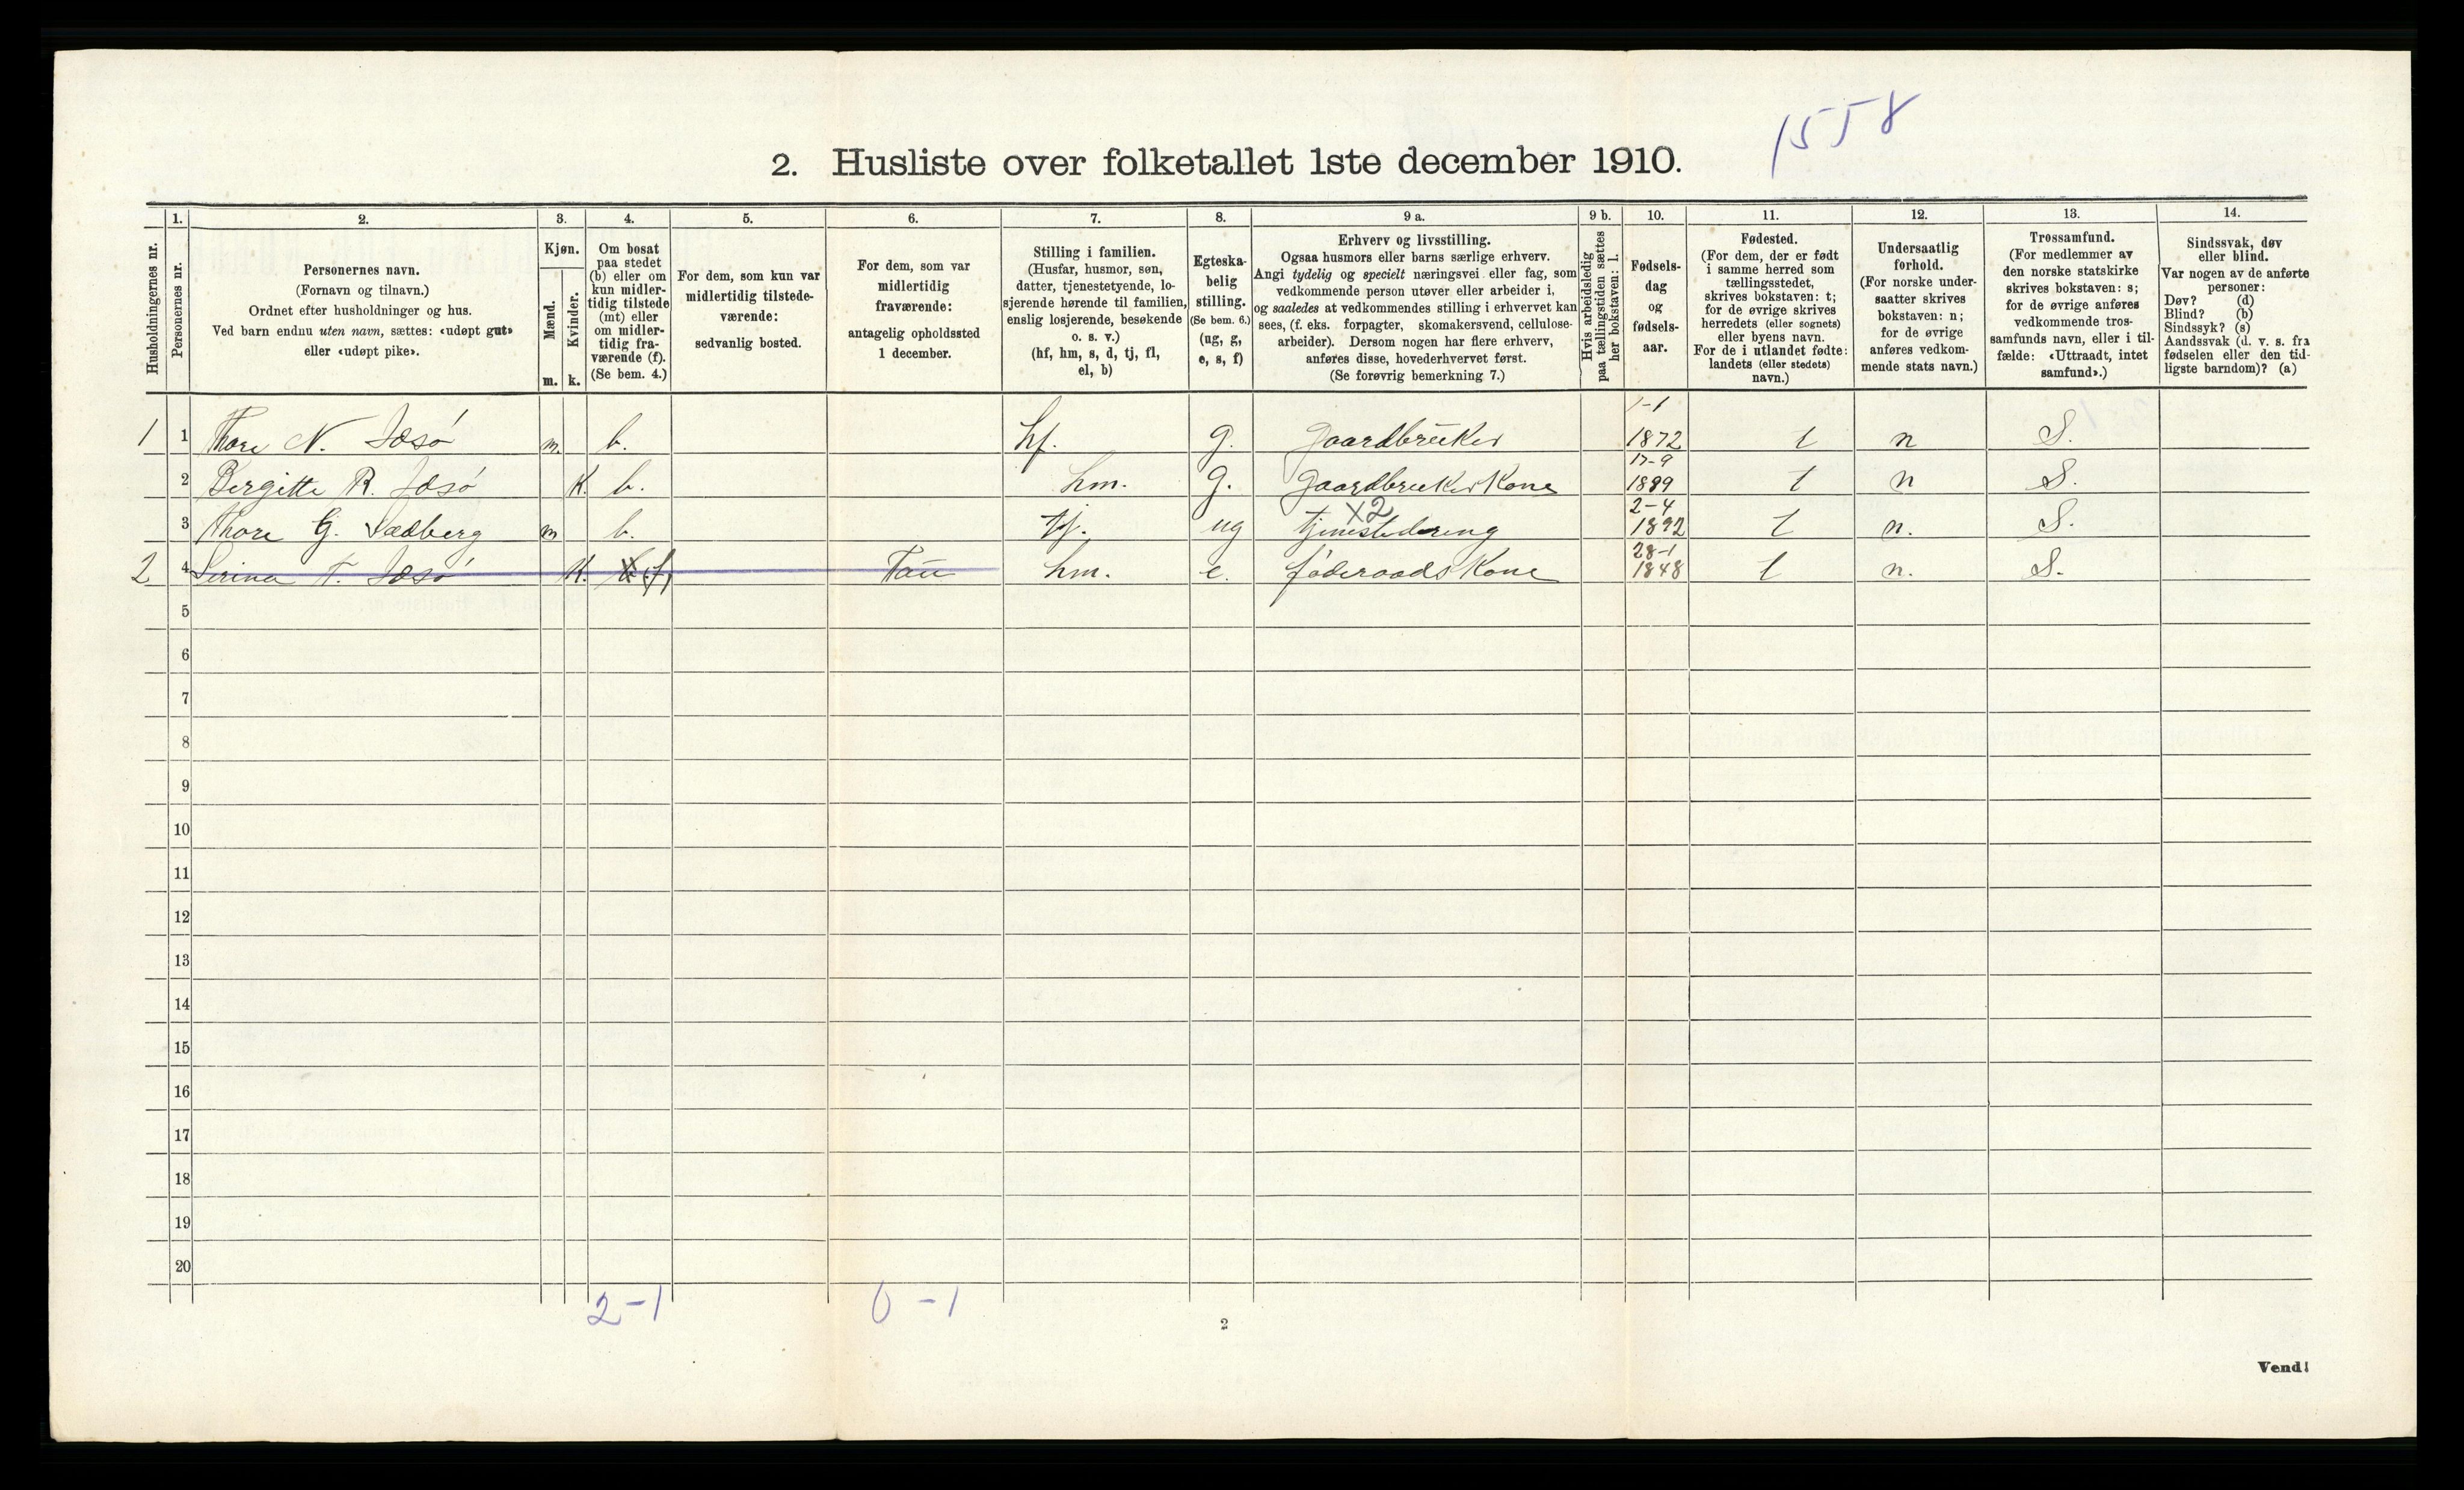 1558
2. Husliste over folketallet 1ste december 1910.
Husholdningernes nr.
1.
Personernes nr.
2.
Personernes navn.
(Fornavn og tilnavn.)
Ordnet efter husholdninger og hus.
Ved barn endnu uten navn, sættes: «udøpt gut»
eller «udøpt pike».
3.
Kjøn.
Mænd.
Kvinder.
m. k.
4.
Om bosat
paa stedet
(b) eller om
kun midler-
tidig tilstede
(mt) eller
om midler-
tidig fra-
værende (f).
(Se bem. 4.)
5.
For dem, som kun var
midlertidig tilstede-
værende:
sedvanlig bosted.
6.
For dem, som var
midlertidig
fraværende:
antagelig opholdssted
1 december.
7.
Stilling i familien.
(Husfar, husmor, søn,
datter, tjenestetyende, lo-
sjerende hørende til familien,
enslig losjerende, besøkende
o. s. v.)
(hf, hm, s, d, tj, fl,
el, b)
8.
Egteska-
belig
stilling.
(Se bem. 6.)
(ug, g,
e, s, f)
9 a.
Erhverv og livsstilling.
Ogsaa husmors eller barns særlige erhverv.
Angi tydelig og specielt næringsvei eller fag, som
vedkommende person utøver eller arbeider i,
og saaledes at vedkommendes stilling i erhvervet kan
sees, (f. eks. forpagter, skomakersvend, cellulose-
arbeider). Dersom nogen har flere erhverv,
anføres disse, hovederhvervet først.
(Se forøvrig bemerkning 7.)
9 b.
Hvis arbeidsledig
paa tællingstiden sættes
her bokstaven: l.
10.
Fødsels-
dag
og
fødsels-
aar.
11.
Fødested.
(For dem, der er født
i samme herred som
tællingsstedet,
skrives bokstaven: t;
for de øvrige skrives
herredets (eller sognets)
eller byens navn.
For de i utlandet fødte:
landets (eller stedets)
navn.)
12.
Undersaatlig
forhold.
(For norske under-
saatter skrives
bokstaven: n;
for de øvrige
anføres vedkom-
mende stats navn.)
13.
Trossamfund.
(For medlemmer av
den norske statskirke
skrives bokstaven: s;
for de øvrige anføres
vedkommende tros-
samfunds navn, eller i til-
fælde: «Uttraadt, intet
samfund».)
14.
Sindssvak, døv
eller blind.
Var nogen av de anførte
personer:
Døv? (d)
Blind? (b)
Sindssyk? (s)
Aandssvak (d. v. s. fra
fødselen eller den tid-
ligste barndom)? (a)
1 1 Thore N. Idsø m. b. hf. g. gaardbruker 1-1 1872 t n S.
2 Bergitte R. Idsø K. b. hm. g. gaardbruker Kone 17-9 1889 t n S.
3 Thore G. Sædberg m b. tj. ug tjenestedreng X2 2-4 1892 t n. S.
2 4 Serina T. Idsø K. b f, Tau hm. e. føderaads Kone 28-1 1848 t n. S.
5
6
7
8
9
10
11
12
13
14
15
16
17
18
19
20
2-1 0-1
2
Vend!